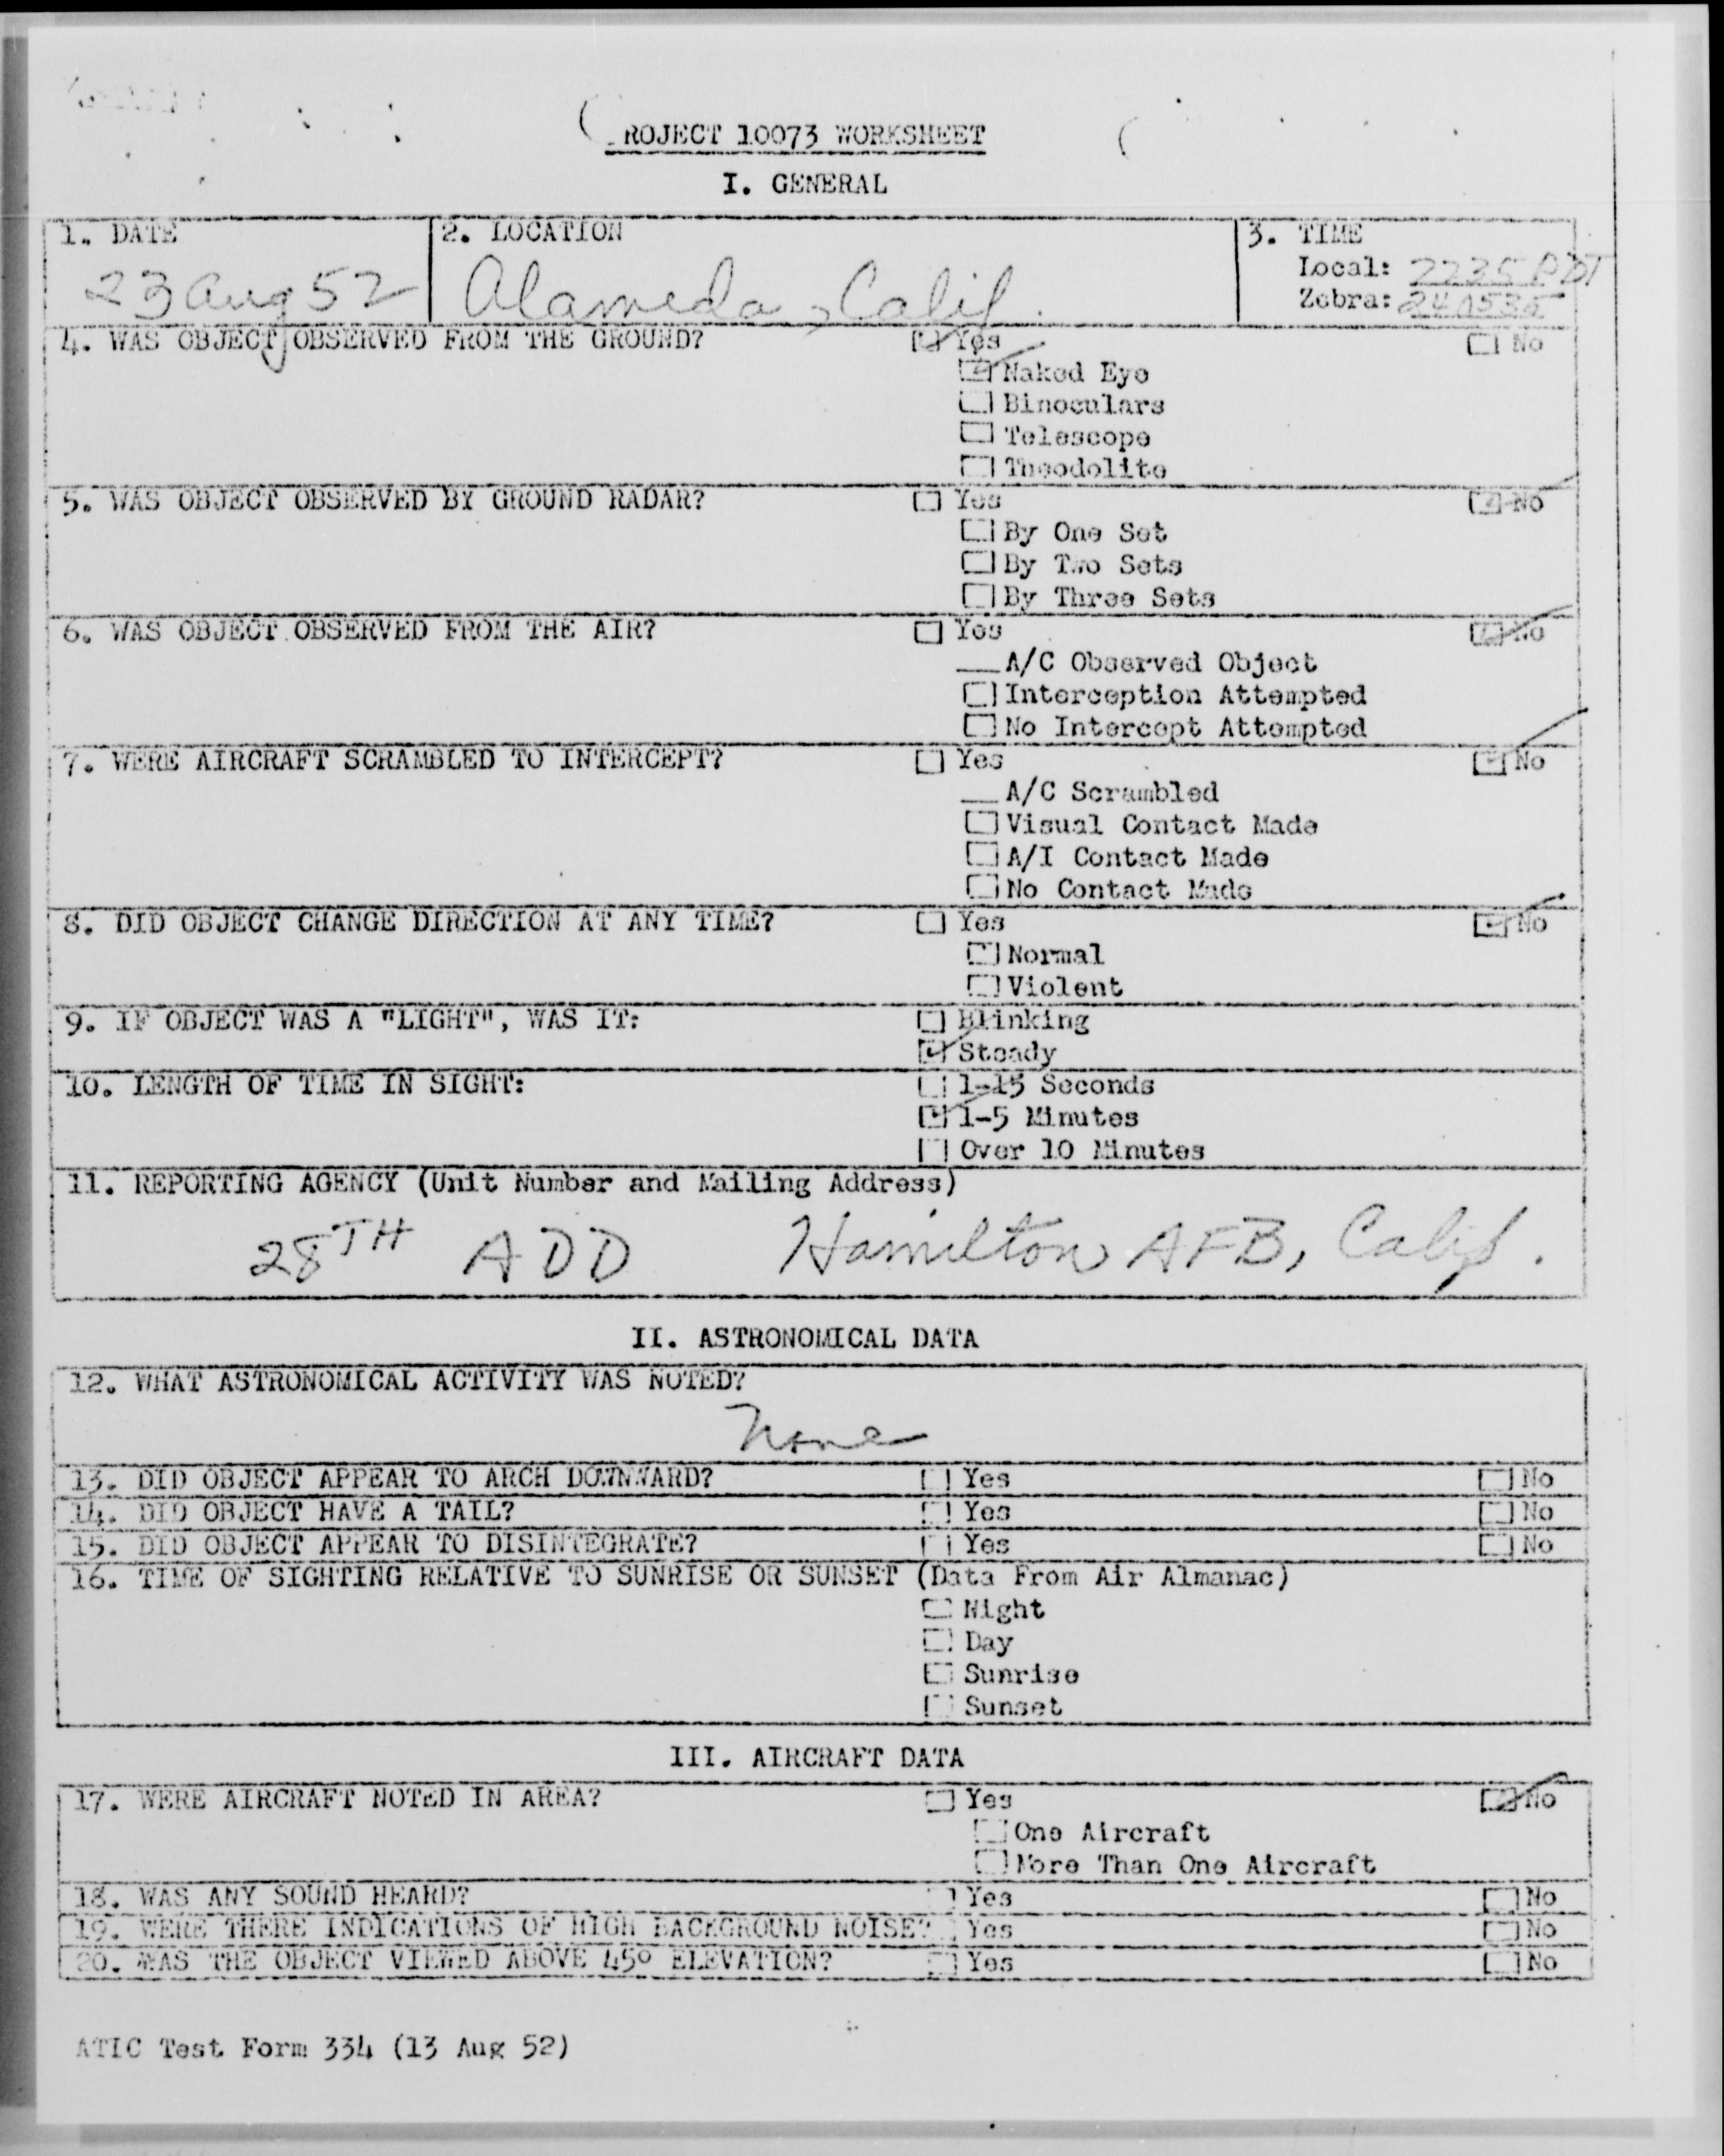 ROJECT 10073 WORKSHEET
I. GENERAL
1. DATE
23 Aug 52
2. LOCATION
Alameda, Calif.
3. TIME
Local: 2235 PDT
Zebra: 240535
4. WAS OBJECT OBSERVED FROM THE GROUND? Yes No
Naked Eye
Binoculars
Telescope
Theodolite
5. WAS OBJECT OBSERVED BY GROUND RADAR? Yes No
By One Set
By Two Sets
By Three Sets
6. WAS OBJECT OBSERVED FROM THE AIR? Yes No
A/C Observed Object
Interception Attempted
No Intercept Attempted
7. WERE AIRCRAFT SCRAMBLED TO INTERCEPT? Yes No
A/C Scrambled
Visual Contact Made
A/I Contact Made
No Contact Made
8. DID OBJECT CHANGE DIRECTION AT ANY TIME? Yes No
Normal
Violent
9. IF OBJECT WAS A "LIGHT", WAS IT: Blinking
Steady
10. LENGTH OF TIME IN SIGHT: 1-15 Seconds
1-5 Minutes
Over 10 Minutes
11. REPORTING AGENCY (Unit Number and Mailing Address)
28TH ADD Hamilton AFB, Calif.
II. ASTRONOMICAL DATA
12. WHAT ASTRONOMICAL ACTIVITY WAS NOTED?
None
13. DID OBJECT APPEAR TO ARCH DOWNWARD? Yes No
14. DID OBJECT HAVE A TAIL? Yes No
15. DID OBJECT APPEAR TO DISINTEGRATE? Yes No
16. TIME OF SIGHTING RELATIVE TO SUNRISE OR SUNSET (Data From Air Almanac)
Night
Day
Sunrise
Sunset
III. AIRCRAFT DATA
17. WERE AIRCRAFT NOTED IN AREA? Yes No
One Aircraft
More Than One Aircraft
18. WAS ANY SOUND HEARD? Yes No
19. WERE THERE INDICATIONS OF HIGH BACKGROUND NOISE? Yes No
20. WAS THE OBJECT VIEWED ABOVE 45° ELEVATION? Yes No
ATIC Test Form 334 (13 Aug 52)